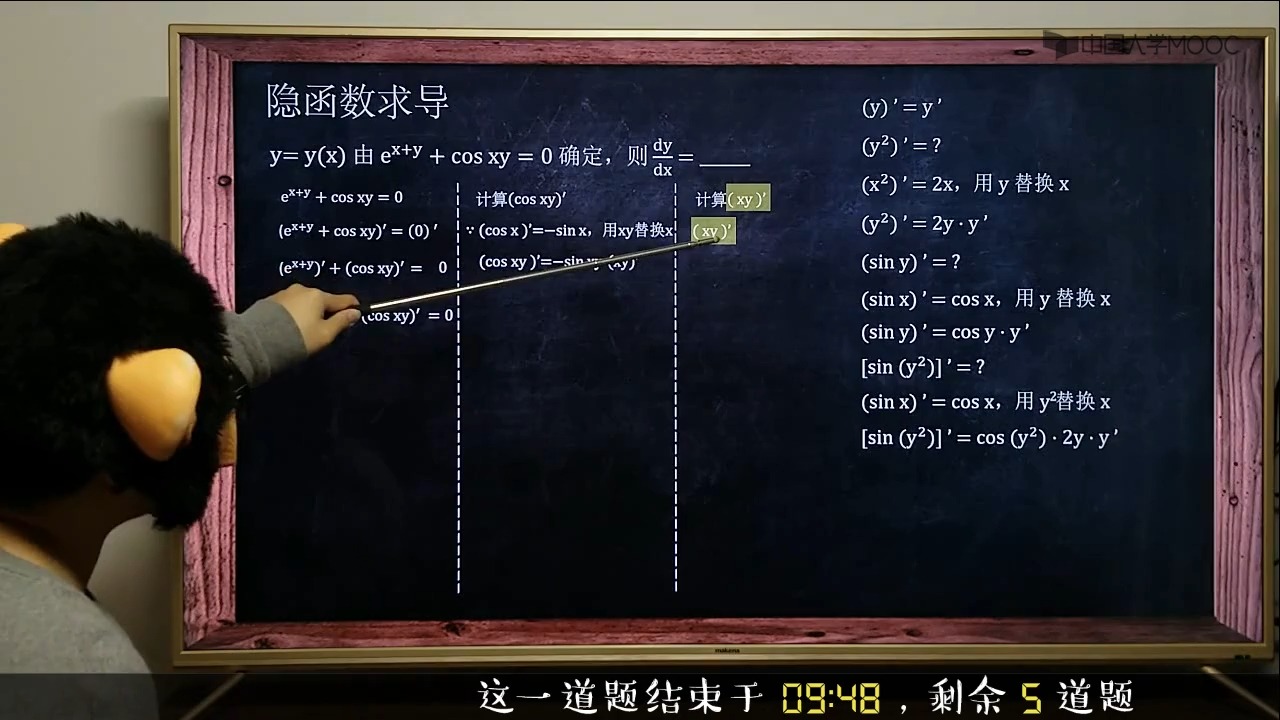 中国大学MOOC
隐函数求导
y= y(x) 由 e^{x+y} + cos xy = 0 确定，则 dy/dx = ____
e^{x+y} + cos xy = 0
(e^{x+y} + cos xy)′ = (0) ′
(e^{x+y})′ + (cos xy)′ = 0
(cos xy)′ = 0
计算(cos xy)′
∵ (cos x )′=−sin x，用xy替换x
(cos xy )′=−sin xy·(xy)
计算( xy )′
( xy )′
(y) ′ = y ′
(y²) ′ = ?
(x²) ′ = 2x，用 y 替换 x
(y²) ′ = 2y · y ′
(sin y) ′ = ?
(sin x) ′ = cos x，用 y 替换 x
(sin y) ′ = cos y · y ′
[sin (y²)] ′ = ?
(sin x) ′ = cos x，用 y²替换 x
[sin (y²)] ′ = cos (y²) · 2y · y ′
makena
这一道题结束于 09:48，剩余 5 道题